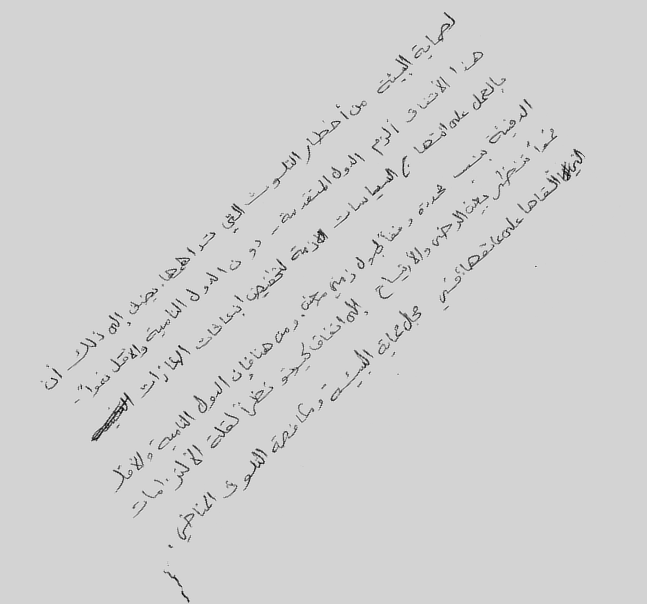 لحماية البيئة من أخطار التلوث التي تداهمها. يضاف إلى ذلك أن
هذا الاتفاق ألزم الدول المتقدمة - دون الدول النامية والأقل نمواً -
بالعمل على انتهاج السياسات اللازمة لتخفيض انبعاثات الغازات
الدفيئة بنسب محددة وفقاً لجدول زمني معين. ومن هنا فإن الدول النامية والأقل
نمواً تنظر بعين الرضى والارتياح إلى اتفاق كيوتو نظراً لقلة الالتزامات
التي ألقاها على عاتقها في مجال حماية البيئة ومكافحة التلوث المناخي.